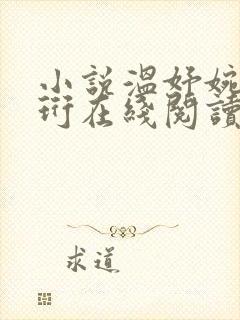 小說溫妤婉
珩在綫閱讀
求道